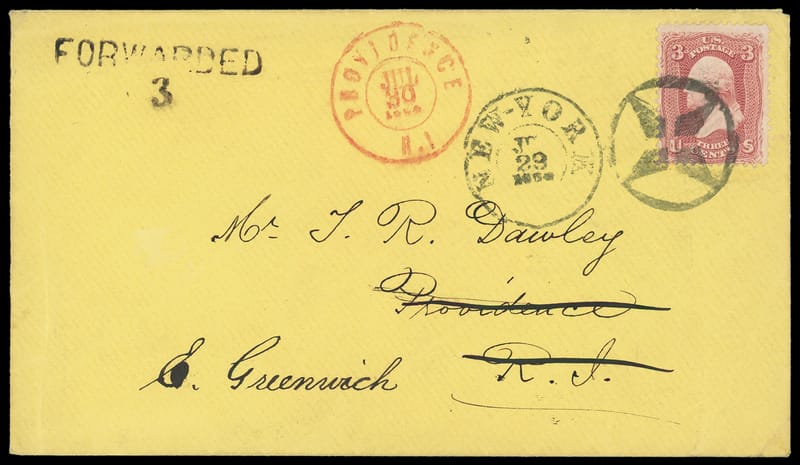 FORWARDED
3
PROVIDENCE
JUL
30
R.I
NEW-YORK
29
3 U.S. 3
POSTAGE
THREE
U CENTS S
Mr. T. R. Dawley
Providence
R. I.
E. Greenwich